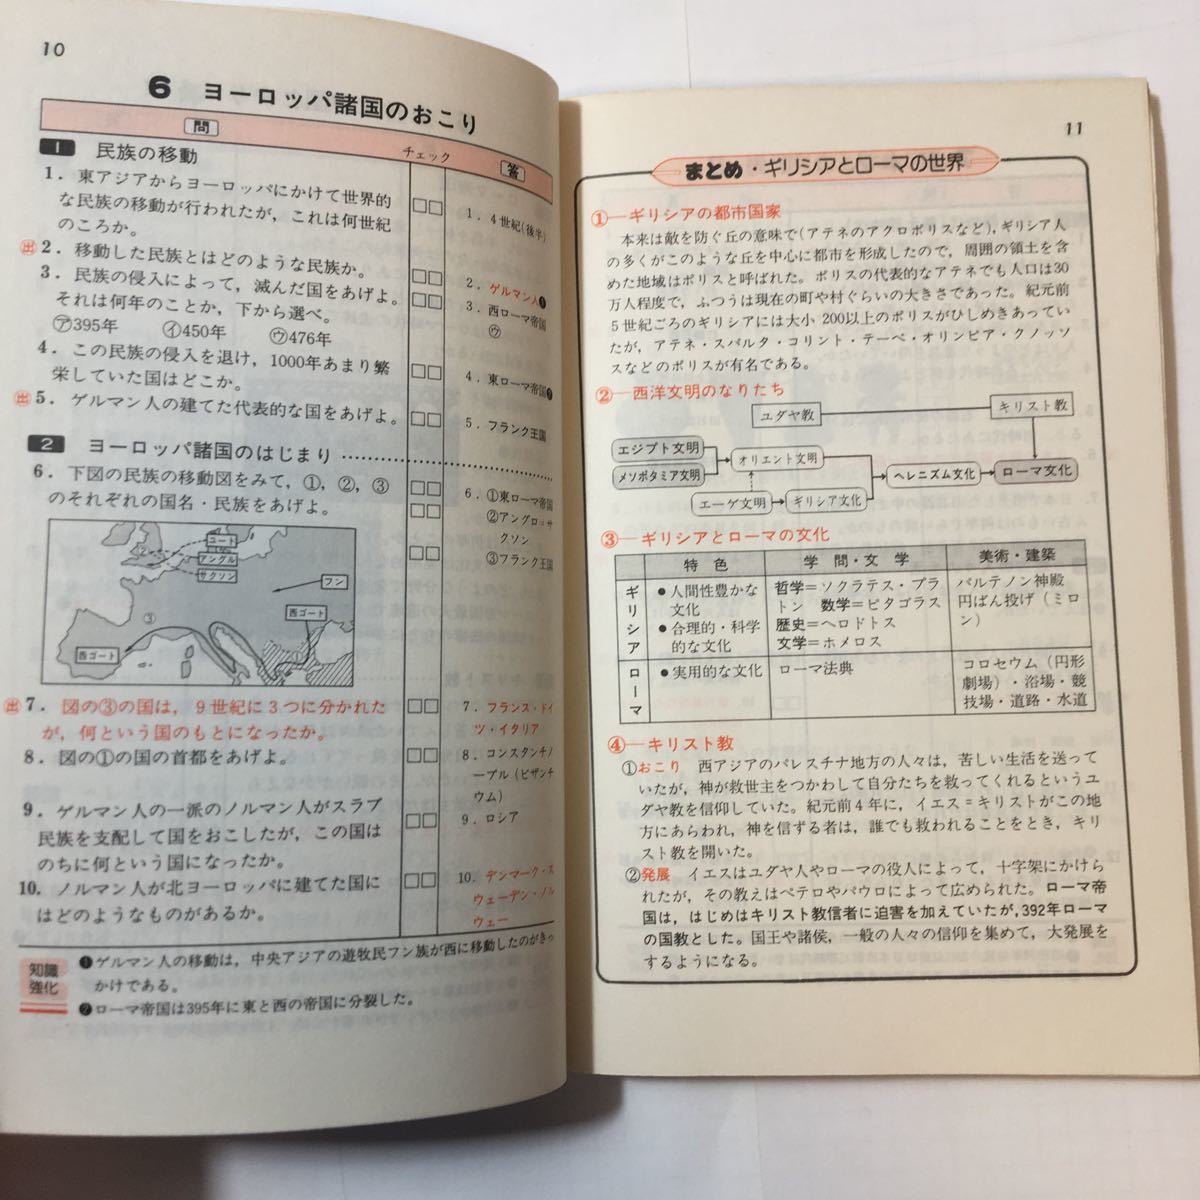 10
6 ヨーロッパ諸国のおこり
問
チェック
答
1 民族の移動
1. 東アジアからヨーロッパにかけて世界的
な民族の移動が行われたが，これは何世紀
のころか。
1. 4世紀(後半)
出 2. 移動した民族とはどのような民族か。
2. ゲルマン人❶
3. 民族の侵入によって，滅んだ国をあげよ。
それは何年のことか，下から選べ。
㋐395年 ㋑450年 ㋒476年
3. 西ローマ帝国
㋒
4. この民族の侵入を退け，1000年あまり繁
栄していた国はどこか。
4. 東ローマ帝国❷
出 5. ゲルマン人の建てた代表的な国をあげよ。
5. フランク王国
2 ヨーロッパ諸国のはじまり
6. 下図の民族の移動図をみて，①，②，③
のそれぞれの国名・民族をあげよ。
6. ①東ローマ帝国
②アングロ=サ
クソン
③フランク王国
ユート
アングル
サクソン
フン
西ゴート
西ゴート
①
②
③
出 7. 図の③の国は，9世紀に3つに分かれた
が，何という国のもとになったか。
7. フランス・ドイ
ツ・イタリア
8. 図の①の国の首都をあげよ。
8. コンスタンチノ
ープル(ビザンチ
ウム)
9. ゲルマン人の一派のノルマン人がスラブ
民族を支配して国をおこしたが，この国は
のちに何という国になったか。
9. ロシア
10. ノルマン人が北ヨーロッパに建てた国に
はどのようなものがあるか。
10. デンマーク・ス
ウェーデン・ノル
ウェー
知識
強化
❶ゲルマン人の移動は，中央アジアの遊牧民フン族が西に移動したのがきっ
かけである。
❷ローマ帝国は395年に東と西の帝国に分裂した。
11
まとめ・ギリシアとローマの世界
①―ギリシアの都市国家
本来は敵を防ぐ丘の意味で(アテネのアクロポリスなど)，ギリシア人
の多くがこのような丘を中心に都市を形成したので，周囲の領土を含
めた地域はポリスと呼ばれた。ポリスの代表的なアテネでも人口は30
万人程度で，ふつうは現在の町や村ぐらいの大きさであった。紀元前
5世紀ごろのギリシアには大小200以上のポリスがひしめきあってい
たが，アテネ・スパルタ・コリント・テーベ・オリンピア・クノッソ
スなどのポリスが有名である。
②―西洋文明のなりたち
ユダヤ教
キリスト教
エジプト文明
メソポタミア文明
オリエント文明
エーゲ文明
ギリシア文化
ヘレニズム文化
ローマ文化
③―ギリシアとローマの文化
特色 学問・文学 美術・建築
ギリシア
●人間性豊かな
文化
●合理的・科学
的な文化
哲学=ソクラテス・プラ
トン 数学=ピタゴラス
歴史=ヘロドトス
文学=ホメロス
パルテノン神殿
円ばん投げ(ミロ
ン)
ローマ
●実用的な文化
ローマ法典
コロセウム(円形
劇場)・浴場・競
技場・道路・水道
④―キリスト教
①おこり 西アジアのパレスチナ地方の人々は，苦しい生活を送って
いたが，神が救世主をつかわして自分たちを救ってくれるというユ
ダヤ教を信仰していた。紀元前4年に，イエス=キリストがこの地
方にあらわれ，神を信ずる者は，誰でも救われることをとき，キリ
スト教を開いた。
②発展 イエスはユダヤ人やローマの役人によって，十字架にかけら
れたが，その教えはペテロやパウロによって広められた。ローマ帝
国は，はじめはキリスト教信者に迫害を加えていたが，392年ローマ
の国教とした。国王や諸侯，一般の人々の信仰を集めて，大発展を
するようになる。